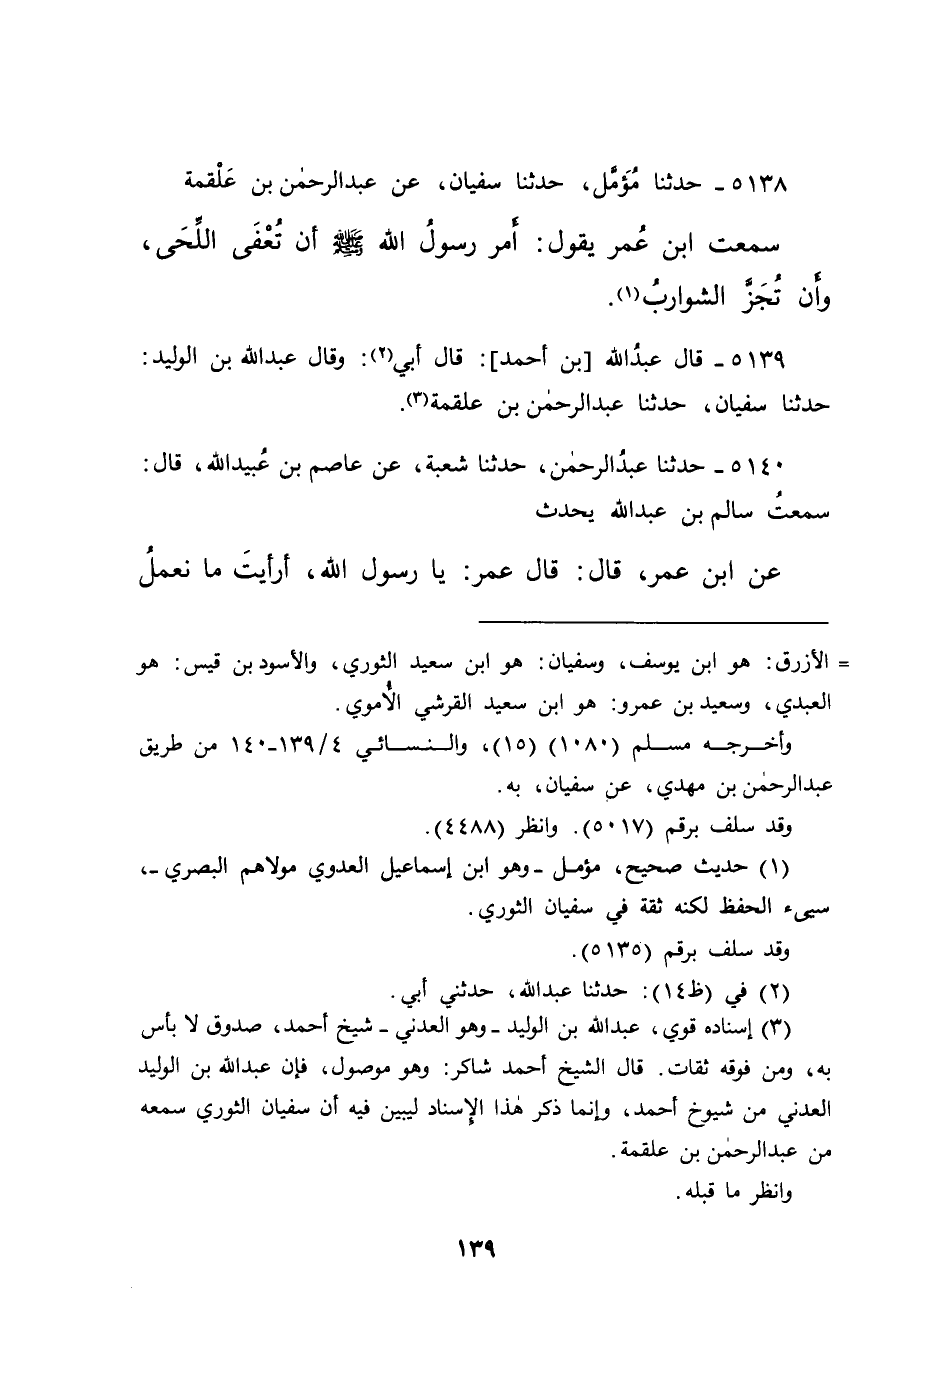 ٥١٣٨ ـ حدثنا مُؤَمَّل، حدثنا سفيان، عن عبدالرحمٰن بن عَلْقمة
سمعت ابن عُمر يقول: أَمر رسولُ الله ﷺ أن تُعْفَى اللِّحَى،
وأَن تُجَزَّ الشواربُ(١).
٥١٣٩ ـ قال عبدُالله [بن أحمد]: قال أبي(٢): وقال عبدالله بن الوليد:
حدثنا سفيان، حدثنا عبدالرحمٰن بن علقمة(٣).
٥١٤٠ ـ حدثنا عبدُالرحمٰن، حدثنا شعبة، عن عاصم بن عُبيدالله، قال:
سمعتُ سالم بن عبدالله يحدث
عن ابن عمر، قال: قال عمر: يا رسول الله، أرأيتَ ما نعملُ
= الأزرق: هو ابن يوسف، وسفيان: هو ابن سعيد الثوري، والأسود بن قيس: هو
العبدي، وسعيد بن عمرو: هو ابن سعيد القرشي الأُموي.
وأخـرجـه مسـلم (١٠٨٠) (١٥)، والـنـسـائـي ١٣٩/٤-١٤٠ من طريق
عبدالرحمٰن بن مهدي، عن سفيان، به.
وقد سلف برقم (٥٠١٧). وانظر (٤٤٨٨).
(١) حديث صحيح، مؤمـل ـ وهو ابن إسماعيل العدوي مولاهم البصري ـ،
سيىء الحفظ لكنه ثقة في سفيان الثوري.
وقد سلف برقم (٥١٣٥).
(٢) في (ظ١٤): حدثنا عبدالله، حدثني أبي.
(٣) إسناده قوي، عبدالله بن الوليد ـ وهو العدني ـ شيخ أحمد، صدوق لا بأس
به، ومن فوقه ثقات. قال الشيخ أحمد شاكر: وهو موصول، فإن عبدالله بن الوليد
العدني من شيوخ أحمد، وإنما ذكر هٰذا الإِسناد ليبين فيه أن سفيان الثوري سمعه
من عبدالرحمٰن بن علقمة.
وانظر ما قبله.
١٣٩